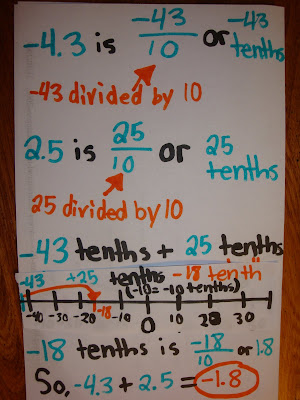 -4.3 is -43/10 or -43 tenths
-43 divided by 10
2.5 is 25/10 or 25 tenths
25 divided by 10
-43 tenths + 25 tenths
-43 +25 tenths -18 tenth
(-10= -10 tenths)
-18
-40 -30 -20 -10 0 10 20 30
-18 tenths is -18/10 or 1.8
So, -4.3 + 2.5 = -1.8